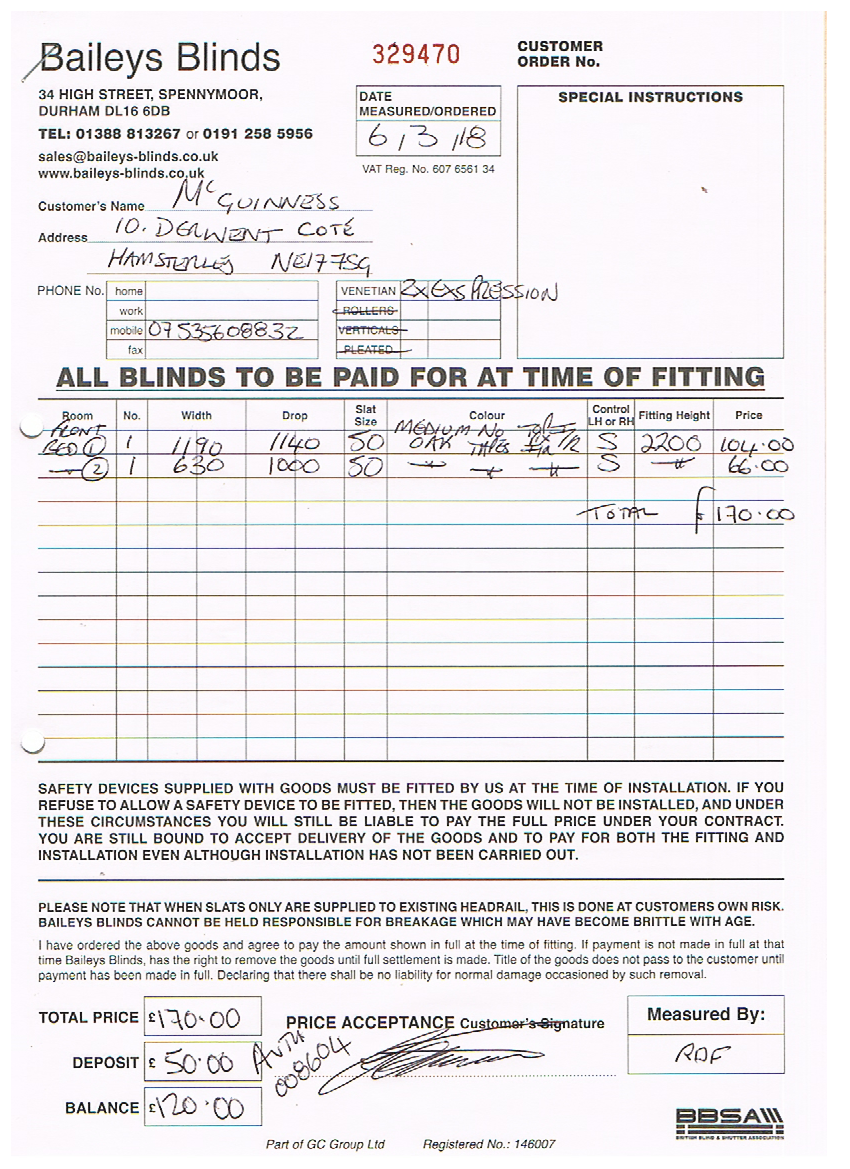 Baileys Blinds
329470
CUSTOMER
ORDER No.
34 HIGH STREET, SPENNYMOOR,
DURHAM DL16 6DB
TEL: 01388 813267 or 0191 258 5956
sales@baileys-blinds.co.uk
www.baileys-blinds.co.uk
DATE
MEASURED/ORDERED
6/3/18
VAT Reg. No. 607 6561 34
SPECIAL INSTRUCTIONS
Customer's Name McGUINNESS
Address 10. DERWENT COTÉ
HAMSTERLEY NE17 7SG
PHONE No. home
work
mobile 07535608832
fax
VENETIAN 2x EXSPRESSION
ROLLERS
VERTICALS
PLEATED
ALL BLINDS TO BE PAID FOR AT TIME OF FITTING
Room No. Width Drop Slat Size Colour Control LH or RH Fitting Height Price
FRONT BED ① 1 1190 1140 50 MEDIUM OAK No TAPES S 2200 104.00
② 1 630 1000 50 S 66.00
TOTAL £170.00
SAFETY DEVICES SUPPLIED WITH GOODS MUST BE FITTED BY US AT THE TIME OF INSTALLATION. IF YOU
REFUSE TO ALLOW A SAFETY DEVICE TO BE FITTED, THEN THE GOODS WILL NOT BE INSTALLED, AND UNDER
THESE CIRCUMSTANCES YOU WILL STILL BE LIABLE TO PAY THE FULL PRICE UNDER YOUR CONTRACT.
YOU ARE STILL BOUND TO ACCEPT DELIVERY OF THE GOODS AND TO PAY FOR BOTH THE FITTING AND
INSTALLATION EVEN ALTHOUGH INSTALLATION HAS NOT BEEN CARRIED OUT.
PLEASE NOTE THAT WHEN SLATS ONLY ARE SUPPLIED TO EXISTING HEADRAIL, THIS IS DONE AT CUSTOMERS OWN RISK.
BAILEYS BLINDS CANNOT BE HELD RESPONSIBLE FOR BREAKAGE WHICH MAY HAVE BECOME BRITTLE WITH AGE.
I have ordered the above goods and agree to pay the amount shown in full at the time of fitting. If payment is not made in full at that
time Baileys Blinds, has the right to remove the goods until full settlement is made. Title of the goods does not pass to the customer until
payment has been made in full. Declaring that there shall be no liability for normal damage occasioned by such removal.
TOTAL PRICE £170.00
DEPOSIT £50.00
BALANCE £120.00
AUTH
008604
PRICE ACCEPTANCE Customer's Signature
Measured By:
RAF
BBSA
BRITISH BLIND & SHUTTER ASSOCIATION
Part of GC Group Ltd Registered No.: 146007